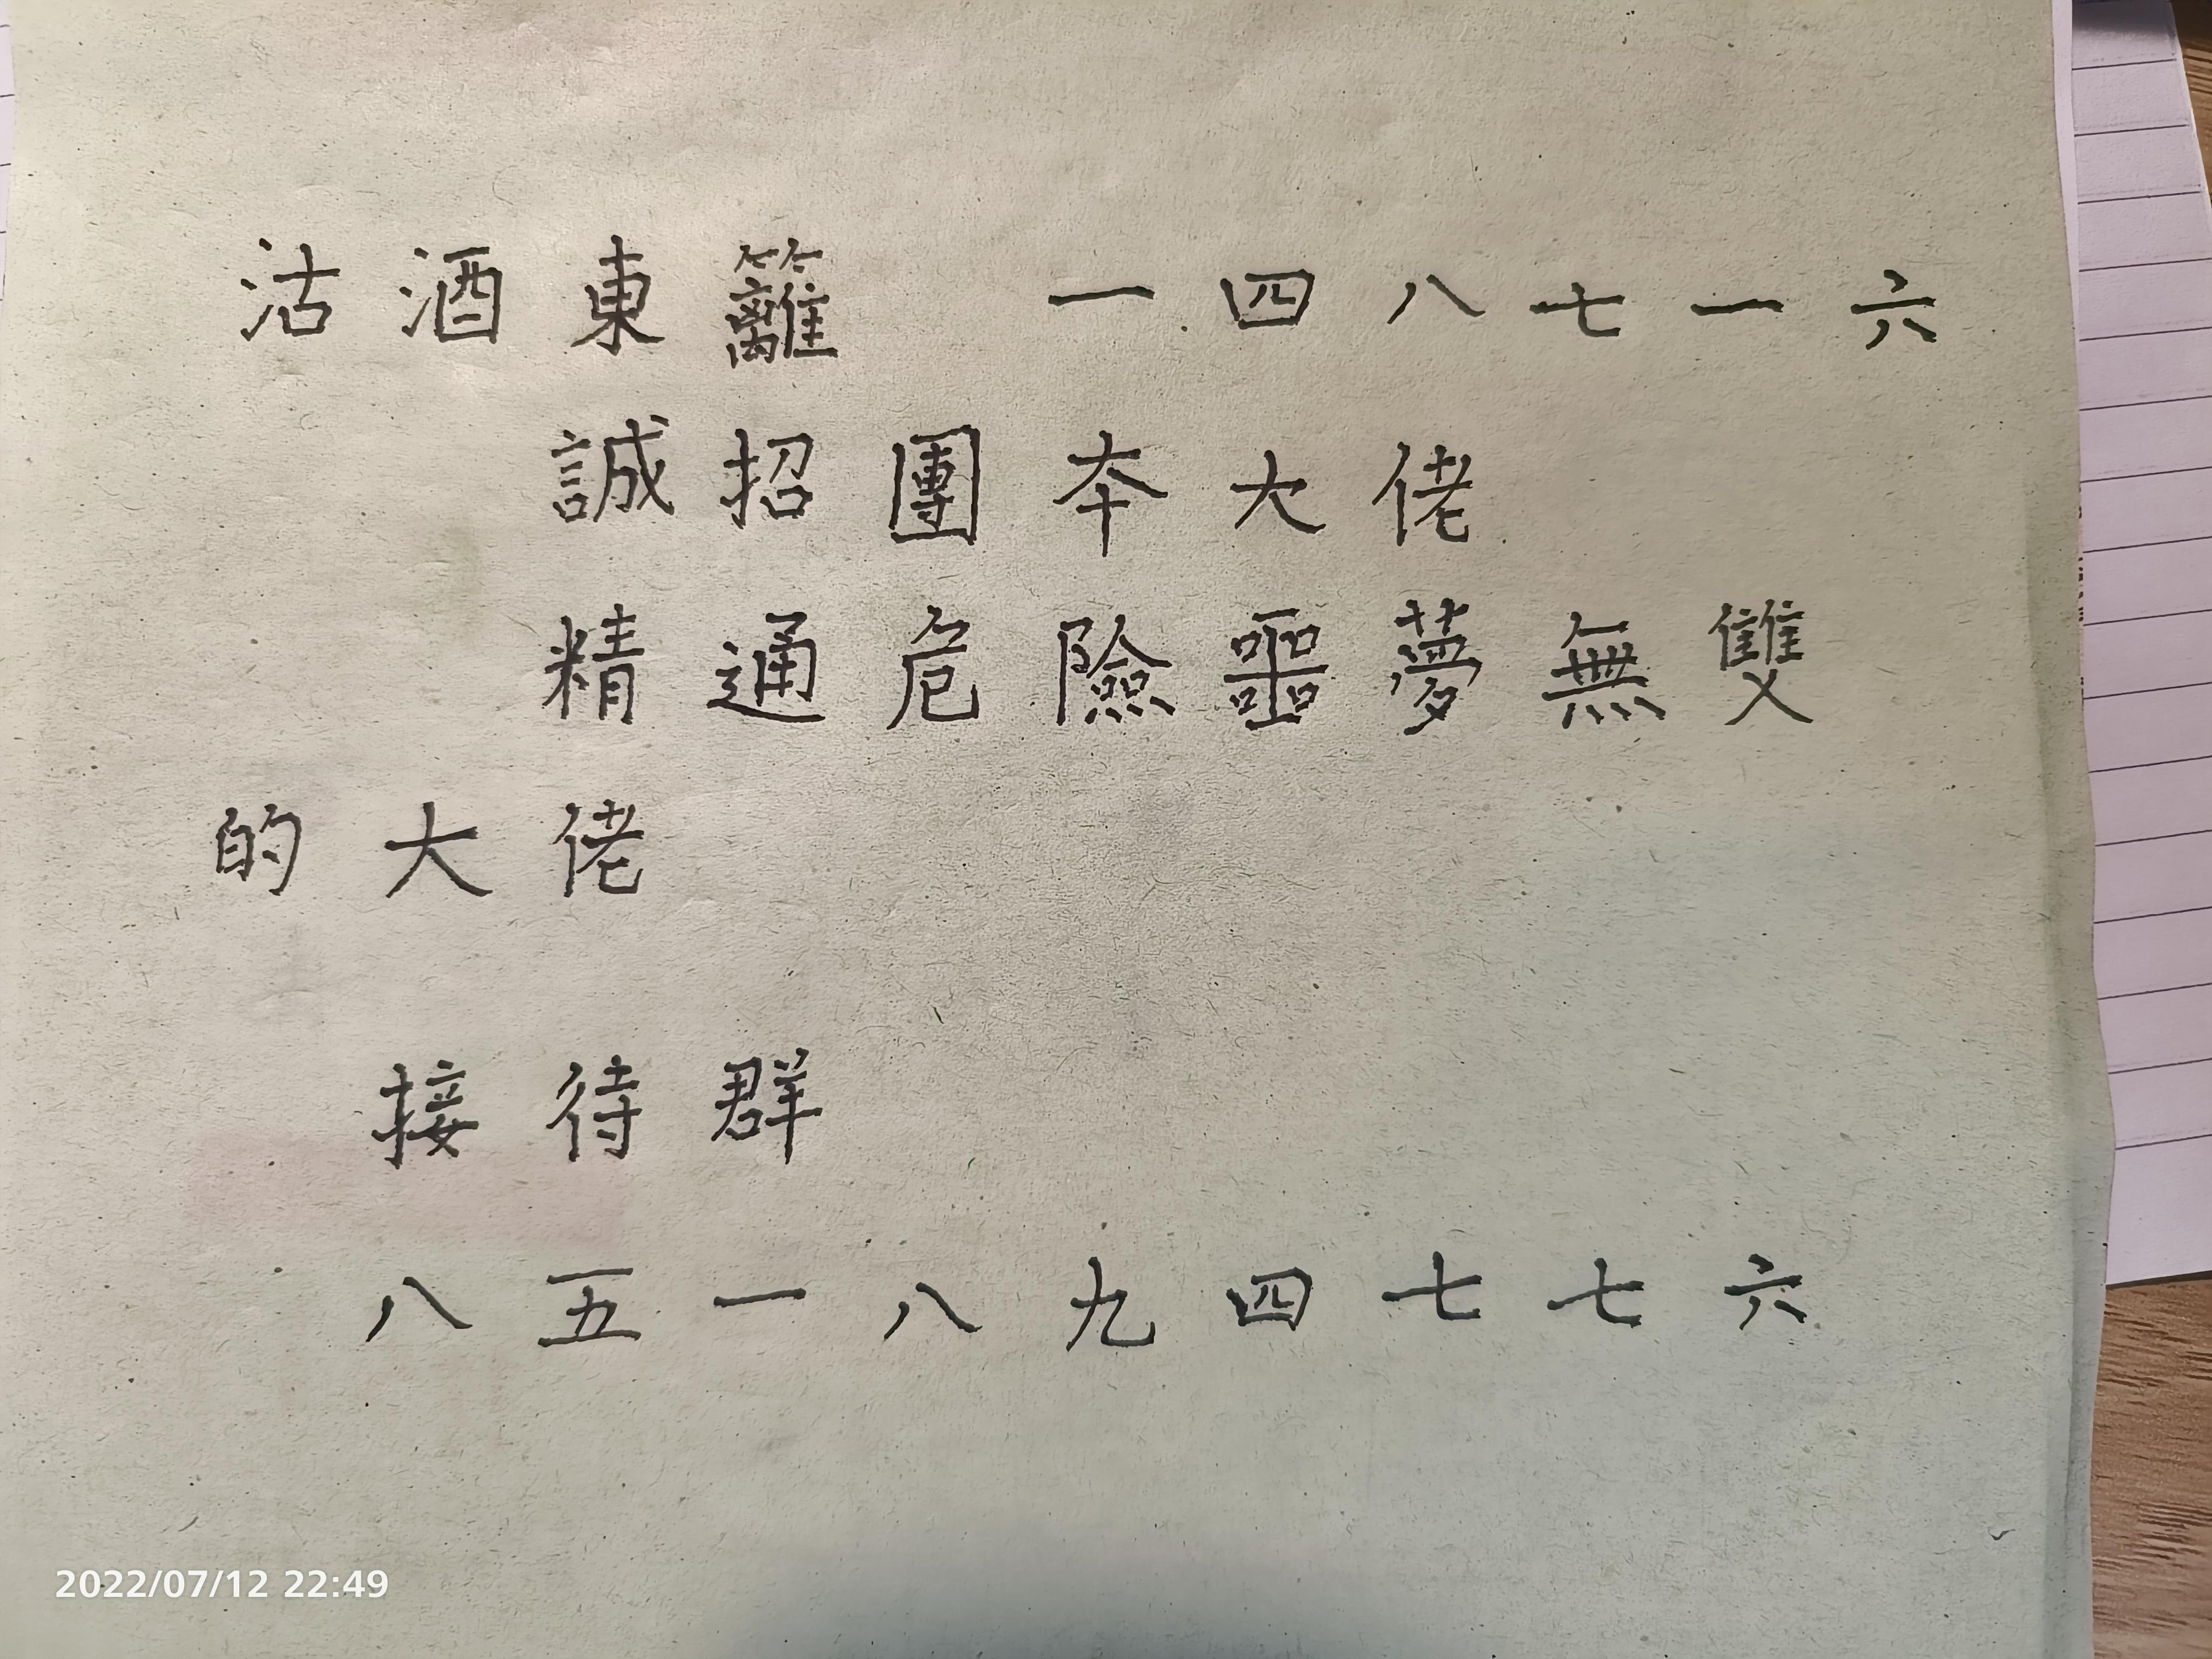 沽酒東籬 一四八七一六
誠招團本大佬
精通危險噩夢無雙
的大佬
接待群
八五一八九四七七六
2022/07/12 22:49